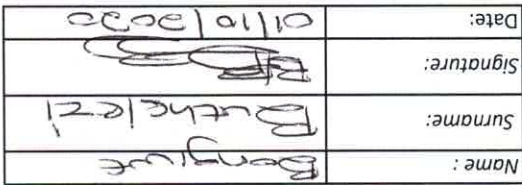 Name : Bongiwe
Surname: Buthelezi
Signature:
Date: 01/10/2020